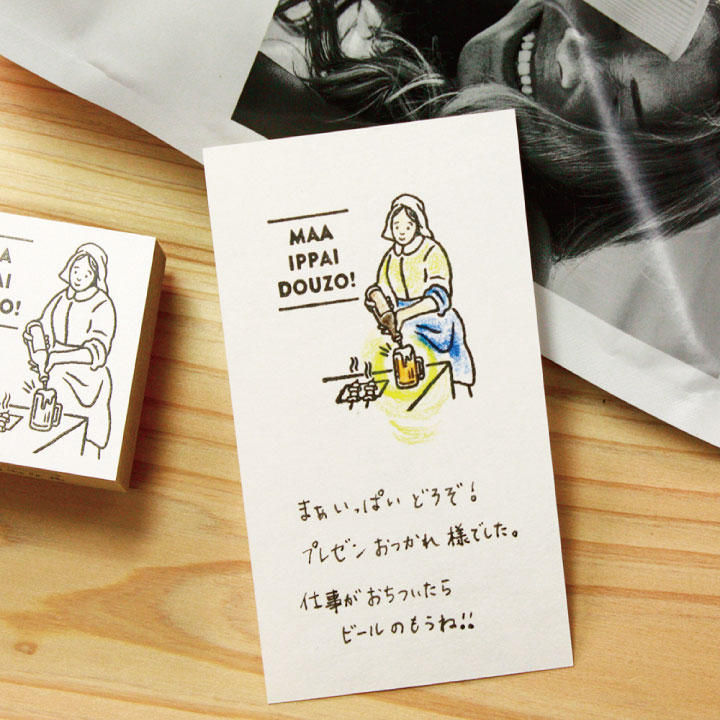 MAA
IPPAI
DOUZO!
まぁいっぱいどうぞ!
プレゼンおつかれ様でした。
仕事がおちついたら
ビールのもうね!!
A
AI
ZO!